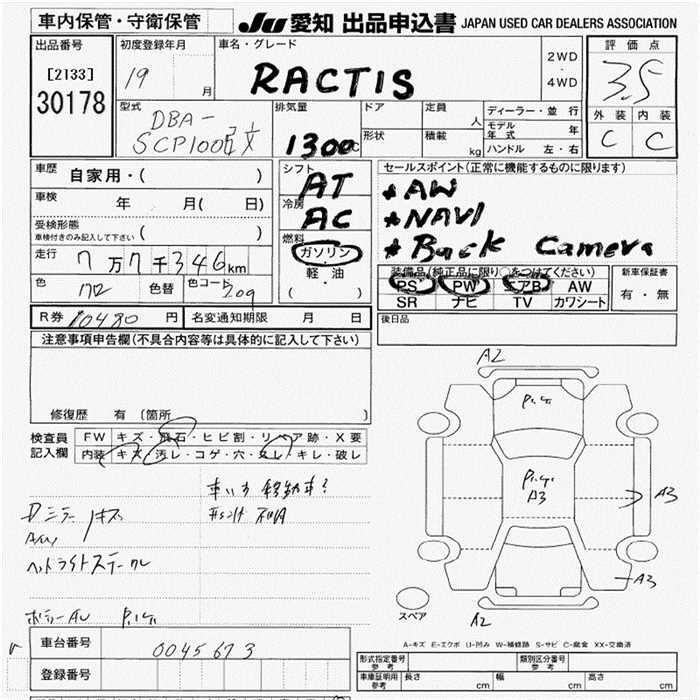 車内保管・守衛保管
JU 愛知 出品申込書 JAPAN USED CAR DEALERS ASSOCIATION
出品番号
[2133]
30178
初度登録年月
19
月
車名・グレード
RACTIS
2WD
・
4WD
評価点
3.5
外装 内装
C C
型式
DBA-
SCP100
排気量
1300cc
ドア
形状
定員
人
積載
kg
ディーラー・並行
モデル
年式 年
ハンドル 左・右
車歴
自家用・( )
車検
年 月( 日)
受検形態
車検付きのみ記入して下さい ( )
走行
7万7千346km
色
色替
色コード
209
R券 10480 円
名変通知期限 月 日
シフト
AT
冷房
AC
燃料
ガソリン
・
軽油
( )
セールスポイント(正常に機能するものに限ります)
★AW
★NAVI
★Back Camera
装備品(純正品に限り○をつけてください)
PS PW エアB AW
SR ナビ TV カワシート
新車保証書
有・無
後日品
注意事項申告欄(不具合内容等は具体的に記入して下さい)
修復歴 有 (箇所 )
検査員
記入欄
FW キズ・飛石・ヒビ割・リペア跡・X要
内装 キズ・汚レ・コゲ・穴・ヌレ・キレ・破レ
車いす移動車?
Dミラー キズ
ヘッドライトスチール
A2
A3
A3
A3
A2
スペア
A-キズ E-エクボ U-凹み W-補修跡 S-サビ C-腐食 XX-交換済
車台番号
0045673
登録番号
形式指定番号
参考
類別区分番号
参考
車庫証明用
参考
長さ cm
幅 cm
高さ cm